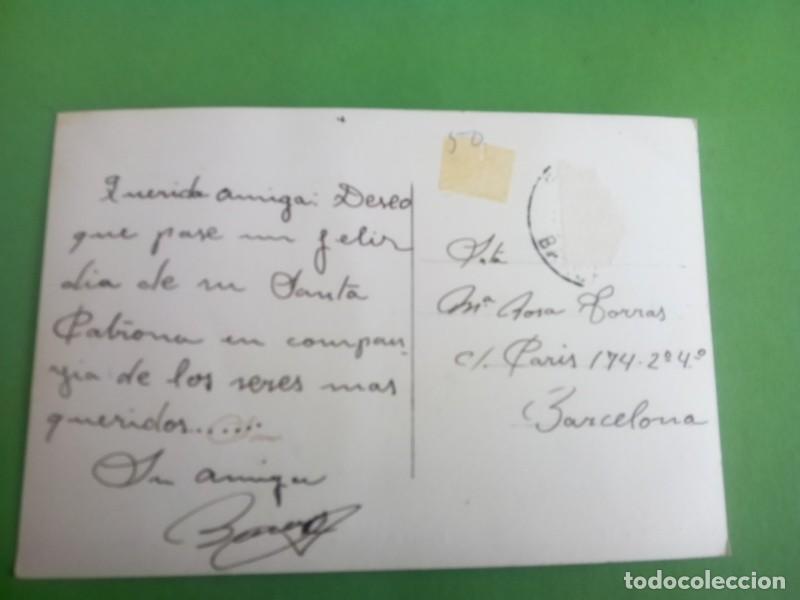 Querida amiga: Deseo
que pase un feliz
dia de su Santa
Patrona en compan-
yia de los seres mas
queridos......
Su amiga
50
Br
Srta
Mª Rosa Torras
c/. Paris 174-2º4º
Barcelona
todocoleccion